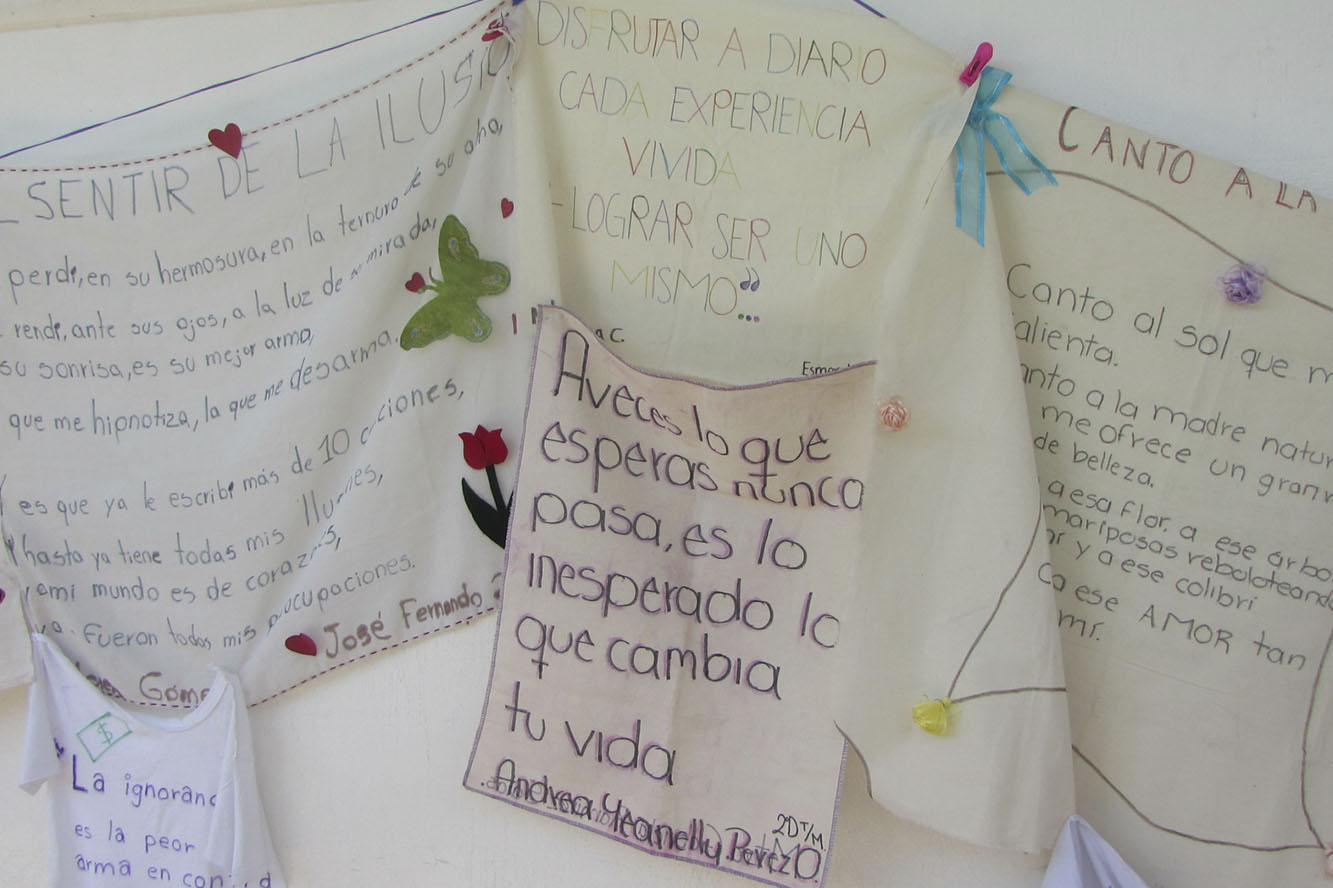 SENTIR DE LA ILUSIO
perdí, en su hermosura, en la ternura
rendí, ante sus ojos, a la luz de su mirada,
su sonrisa, es su mejor arma,
que me hipnotiza, la que me desarma.
es que ya le escribí más de 10
hasta ya tiene todas mis
mi mundo es de
Fueron todas mis
José Fernando
Góme
$
La ignoranc
es la peor
arma en con
DISFRUTAR A DIARIO
CADA EXPERIENCIA
VIVIDA
LOGRAR SER UNO
MISMO”...
Aveces lo que
esperas nunca
pasa, es lo
inesperado lo
que cambia
tu vida
Andrea Yeanelly Perez O.
2D T/M.
CANTO A LA
Canto al sol que m
alienta.
anto a la madre natur
me ofrece un gran
de belleza.
a esa flor, a ese árbo
mariposas reboloteand
y a ese colibrí
a ese AMOR tan
mí.